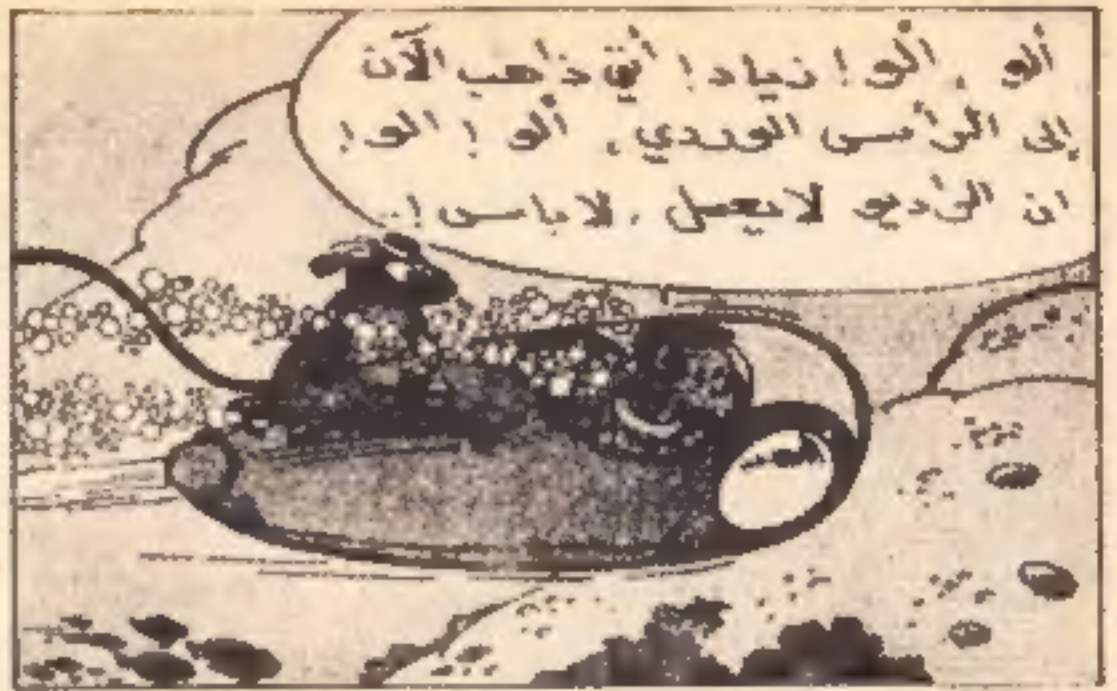 ألو . ألو ! زياد ! أني ذاهب الآن
إلى الرأس الوردي . ألو ! الو !
ان الرأديو لايعمل . لاباس ! ..